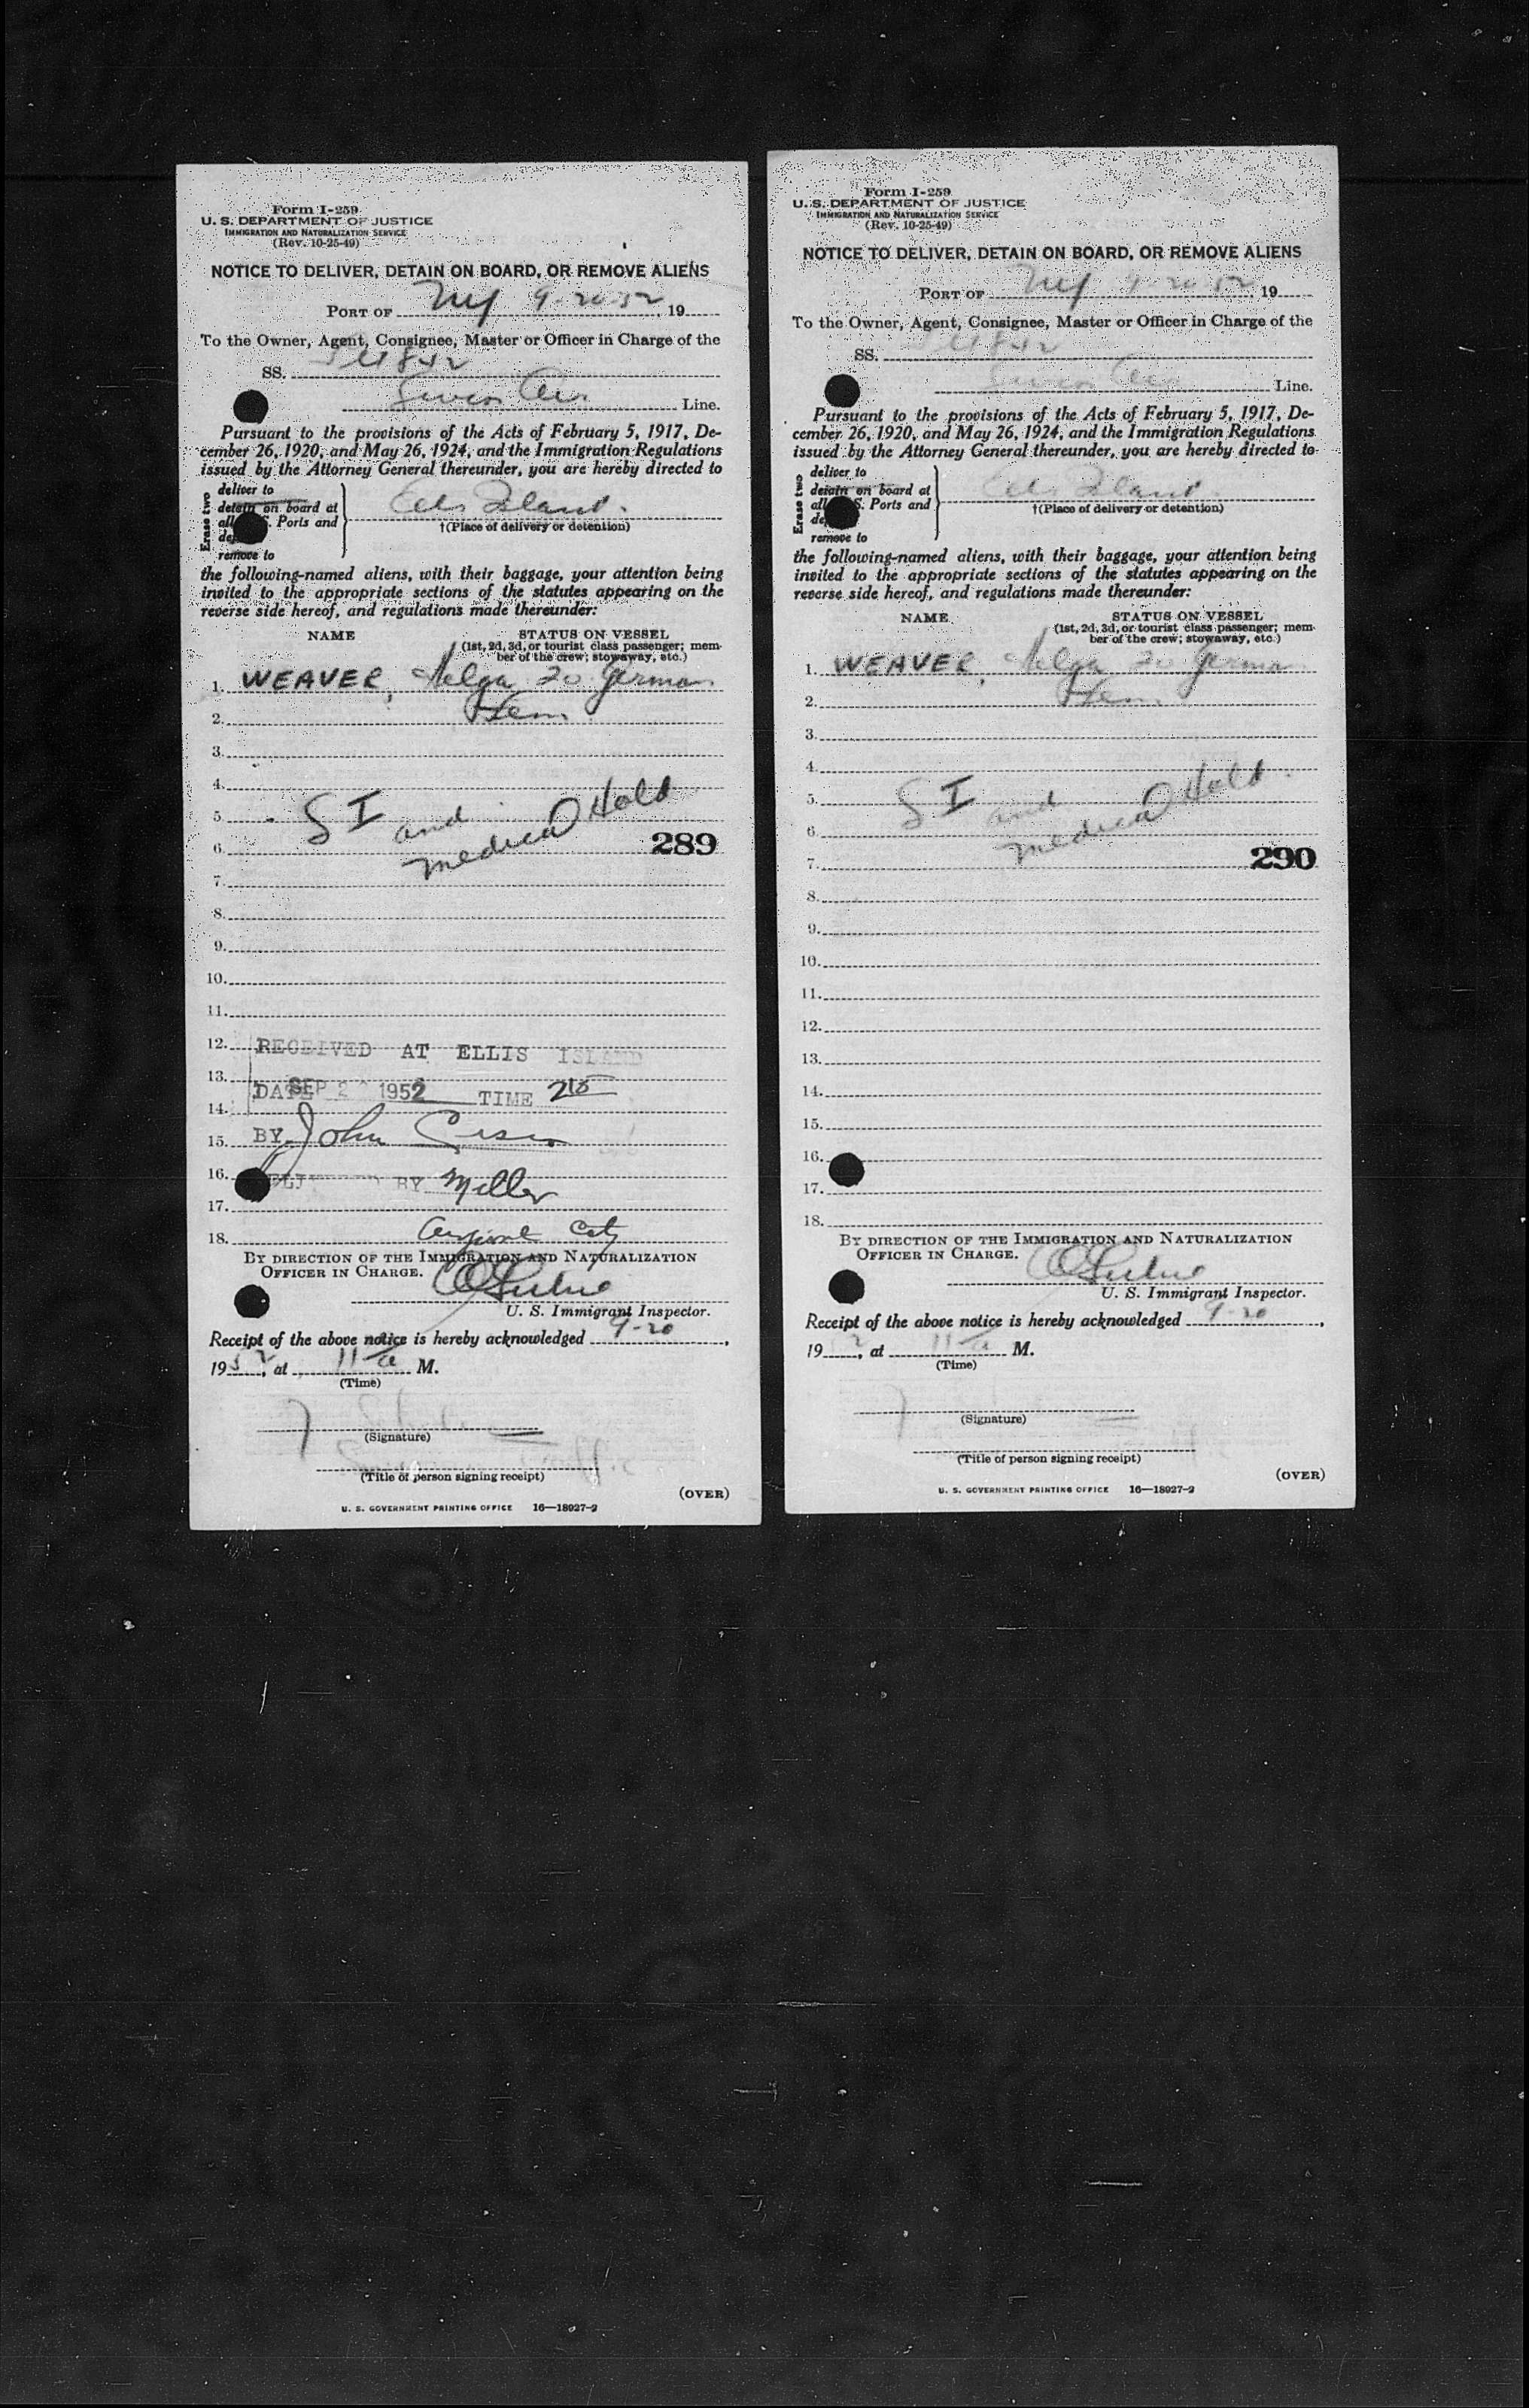 Form I-259
U. S. DEPARTMENT OF JUSTICE
IMMIGRATION AND NATURALIZATION SERVICE
(Rev. 10-25-49)
NOTICE TO DELIVER, DETAIN ON BOARD, OR REMOVE ALIENS
PORT OF NY 9-20-52, 19
To the Owner, Agent, Consignee, Master or Officer in Charge of the
SS.
Swiss Air Line.
Pursuant to the provisions of the Acts of February 5, 1917, De-
cember 26, 1920, and May 26, 1924, and the Immigration Regulations
issued by the Attorney General thereunder, you are hereby directed to
Erase two
deliver to
detain on board at
all S. Ports and
remove to
Ellis Island.
†(Place of delivery or detention)
the following-named aliens, with their baggage, your attention being
invited to the appropriate sections of the statutes appearing on the
reverse side hereof, and regulations made thereunder:
NAME STATUS ON VESSEL
(1st, 2d, 3d, or tourist class passenger; mem-
ber of the crew; stowaway, etc.)
1. WEAVER, Helga 20 German
2. Fem
3.
4.
5. S I and
6. Medical Hold 289
7.
8.
9.
10.
11.
12. RECEIVED AT ELLIS ISLAND
13. DATE SEP 2 1952 TIME 215
14.
15. BY John
16. BY Miller
17.
18. City
BY DIRECTION OF THE IMMIGRATION AND NATURALIZATION
OFFICER IN CHARGE.
U. S. Immigrant Inspector.
Receipt of the above notice is hereby acknowledged 9-20,
1952, at 11 a M.
(Time)
(Signature)
(Title of person signing receipt)
(OVER)
U. S. GOVERNMENT PRINTING OFFICE 16—18027-2
Form I-259
U. S. DEPARTMENT OF JUSTICE
IMMIGRATION AND NATURALIZATION SERVICE
(Rev. 10-25-49)
NOTICE TO DELIVER, DETAIN ON BOARD, OR REMOVE ALIENS
PORT OF NY 9-20-52, 19
To the Owner, Agent, Consignee, Master or Officer in Charge of the
SS.
Swiss Air Line.
Pursuant to the provisions of the Acts of February 5, 1917, De-
cember 26, 1920, and May 26, 1924, and the Immigration Regulations
issued by the Attorney General thereunder, you are hereby directed to
Erase two
deliver to
detain on board at
all S. Ports and
remove to
Ellis Island.
†(Place of delivery or detention)
the following-named aliens, with their baggage, your attention being
invited to the appropriate sections of the statutes appearing on the
reverse side hereof, and regulations made thereunder:
NAME STATUS ON VESSEL
(1st, 2d, 3d, or tourist class passenger; mem-
ber of the crew; stowaway, etc.)
1. WEAVER, Helga 20 German
2. Fem
3.
4.
5. S I and
6. Medical Hold
7. 290
8.
9.
10.
11.
12.
13.
14.
15.
16.
17.
18.
BY DIRECTION OF THE IMMIGRATION AND NATURALIZATION
OFFICER IN CHARGE.
U. S. Immigrant Inspector.
Receipt of the above notice is hereby acknowledged 9-20,
1952, at 11 a M.
(Time)
(Signature)
(Title of person signing receipt)
(OVER)
U. S. GOVERNMENT PRINTING OFFICE 16—18027-2